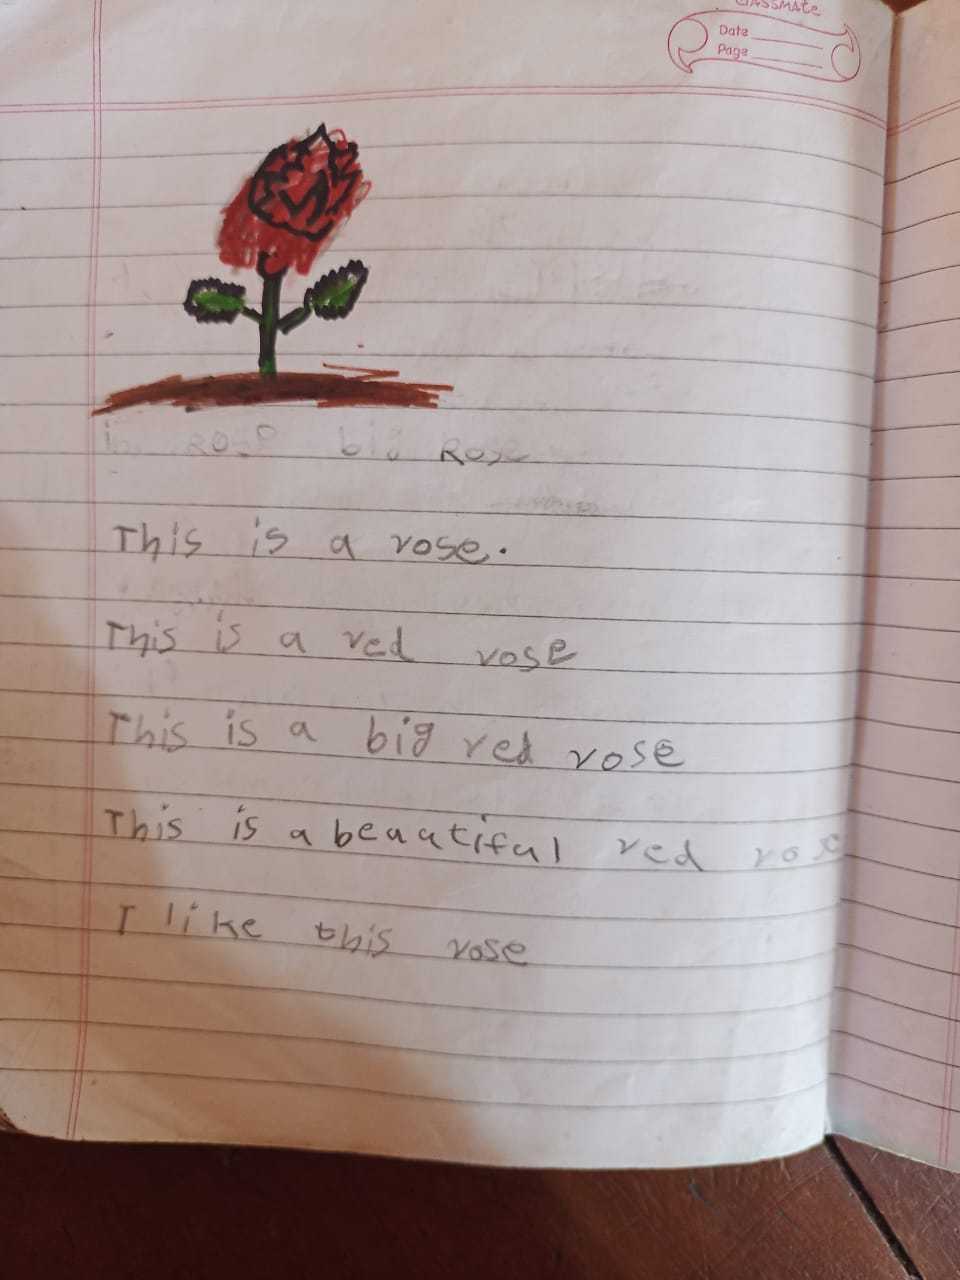 classmate
Date
Page
rose big Rose
This is a rose.
This is a red rose
This is a big red rose
This is a beautiful red rose
I like this rose